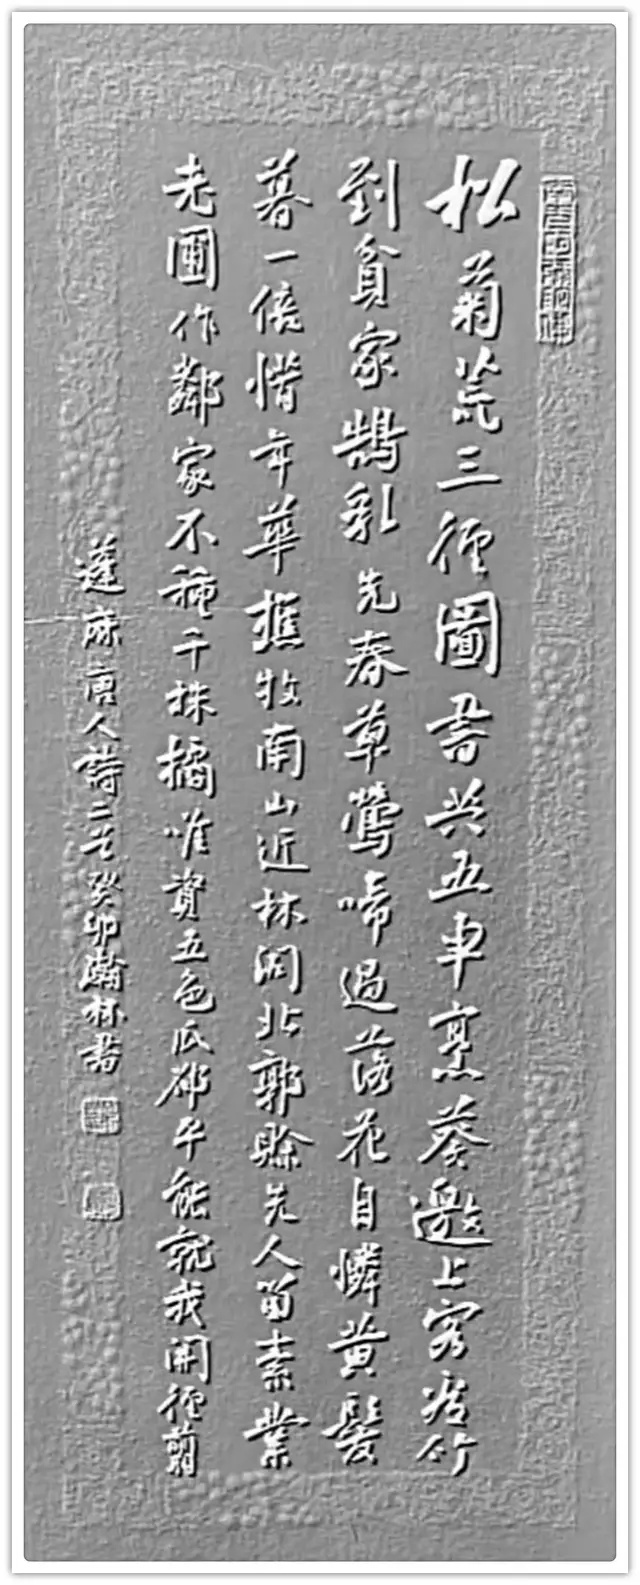 松菊荒三徑圖書共五車烹葵邀上客看竹
到貧家鵲乳先春草鶯啼過落花自憐黃髮
暮一倍惜年華樵牧南山近林閭北郭賒先人留素業
老圃作鄰家不種千株橘唯資五色瓜邵平能就我開徑剪
蓬麻唐人詩二首癸卯瀚林書